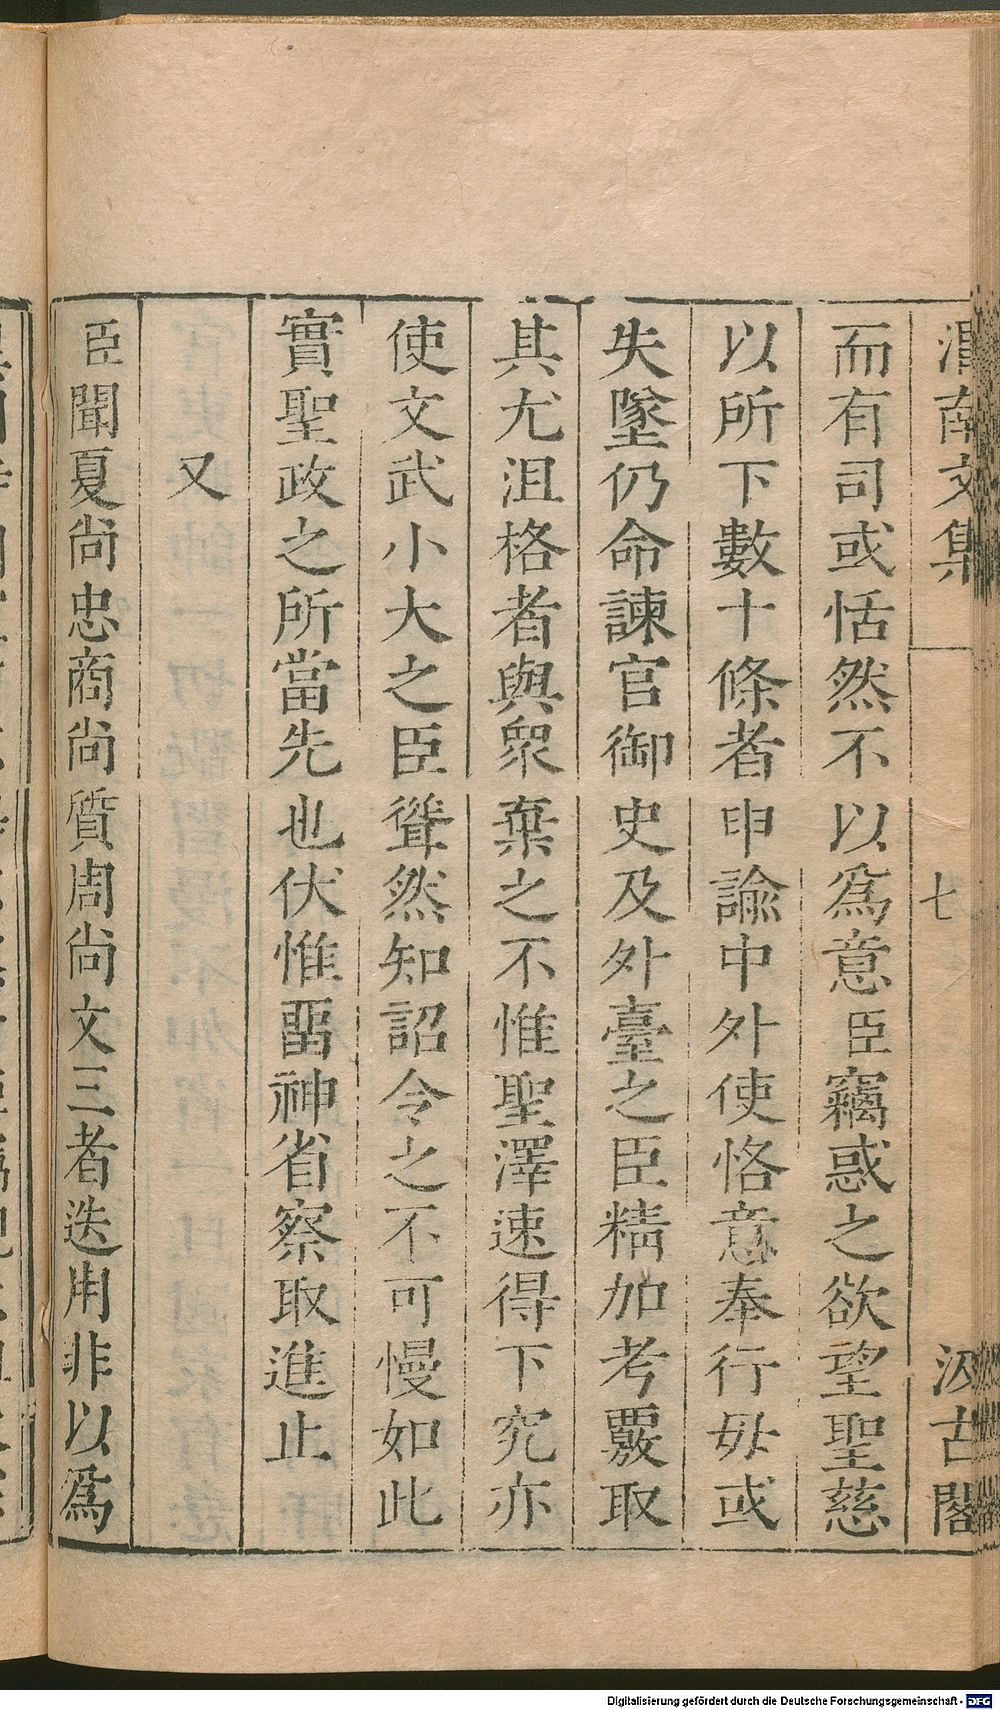 渭南文集 七 汲古閣
而有司或恬然不以爲意臣竊惑之欲望聖慈
以所下數十條者申諭中外使恪意奉行毋或
失墜仍命諫官御史及外臺之臣精加考覈取
其尤沮格者與衆棄之不惟聖澤速得下究亦
使文武小大之臣聳然知詔令之不可慢如此
實聖政之所當先也伏惟畱神省察取進止
又
臣聞夏尚忠商尚質周尚文三者迭用非以爲
Digitalisierung gefördert durch die Deutsche Forschungsgemeinschaft - DFG